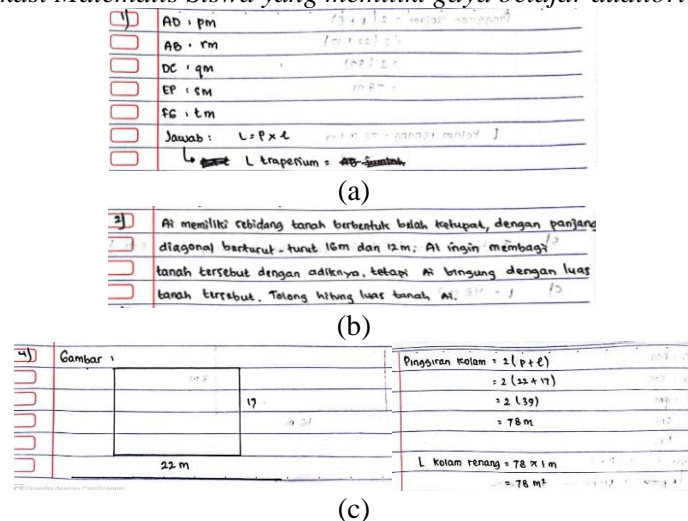 1) AD : pm
AB : rm
DC : qm
EP : sm
FG : tm
Jawab : L = p x l
L trapesium =
(a)
2) Ai memiliki sebidang tanah berbentuk belah ketupat, dengan panjang
diagonal berturut-turut 16m dan 12m; Ai ingin membagi
tanah tersebut dengan adiknya, tetapi Ai bingung dengan luas
tanah tersebut. Tolong hitung luas tanah Ai.
(b)
4) Gambar :
17
22 m
Pinggiran kolam = 2(p+l)
= 2 (22 + 17)
= 2 (39)
= 78 m
L kolam renang = 78 x 1 m
= 78 m²
(c)